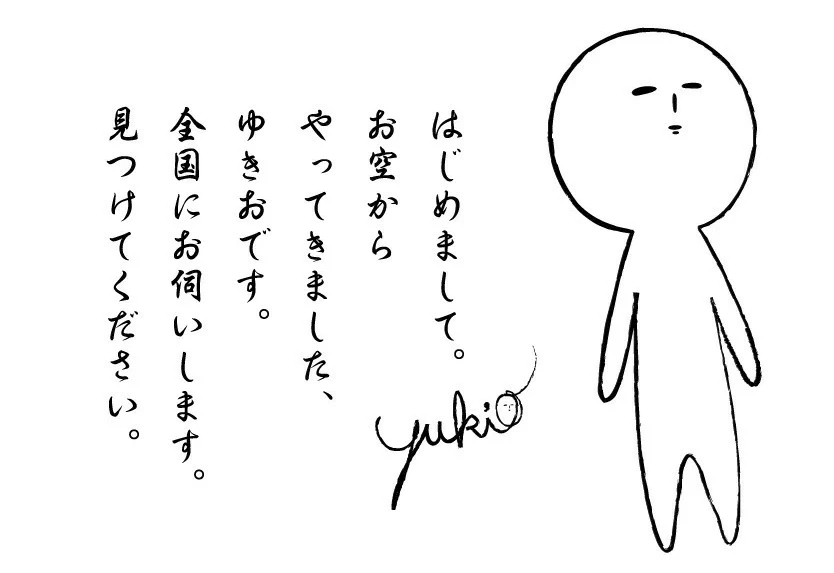 はじめまして。
お空から
やってきました、
ゆきおです。
全国にお伺いします。
見つけてください。
yukio